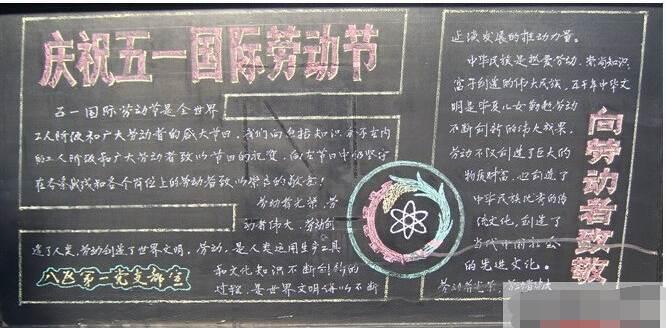 庆祝五一国际劳动节
五一国际劳动节是全世界
工人阶级和广大劳动者的盛大节日，我们向包括知识分子在内
的工人阶级和广大劳动者致以节日的祝贺，向在节日中仍坚守
在各条战线和各个岗位上的劳动者致以崇高的敬意！
劳动者光荣、劳
动者伟大。劳动创
造了人类，劳动创造了世界文明。劳动，是人类运用生产工具
和文化知识不断创新的
过程，是世界文明得以不断
八区第二党支部宣
延演发展的推动力量。
中华民族是热爱劳动、崇尚知识、
富于创造的伟大民族，五千年中华文
明是华夏儿女勤劳劳动
不断创新的伟大成果，
劳动不仅创造了巨大的
物质财富，也创造了
中华民族优秀的传
统文化，创造了
当代中国社会
的先进文化。
劳动者光荣、劳动者伟大
向劳动者致敬